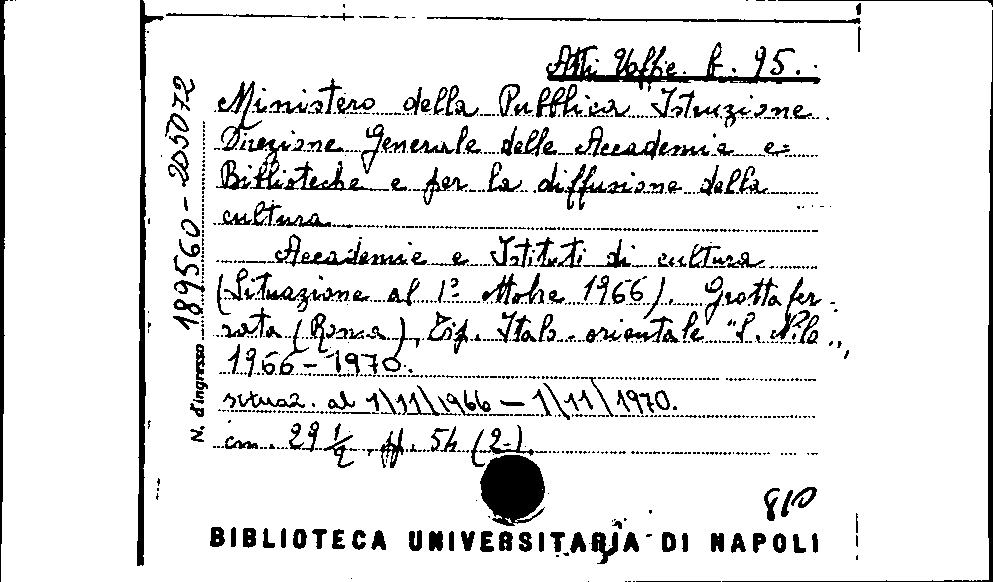 Atti Uffic. b. 95.
Ministero della Pubblica Istruzione
Direzione Generale delle Accademie e=
Biblioteche e per la diffusione della
cultura
Accademie e Istituti di cultura
(Situazione al 1° ottobre 1966). Grottafer-
rata (Roma), Tip. Italo-orientale "S. Nilo",
1966-1970.
situaz. al 1/11/1966 - 1/11/1970.
cm. 29 1/2 . ff. 54 (2-).
810
BIBLIOTECA UNIVERSITARIA DI NAPOLI
N. d'ingresso 189560-205072